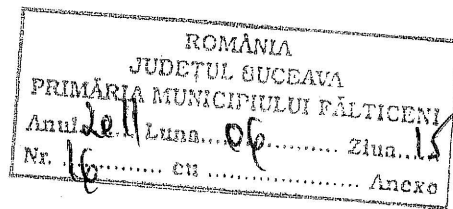 ROMÂNIA
JUDEȚUL SUCEAVA
PRIMĂRIA MUNICIPIULUI FĂLTICENI
Anul 2011 Luna.... 06 .......... Ziua.... 15
Nr. .16............ cu .................... Anexe